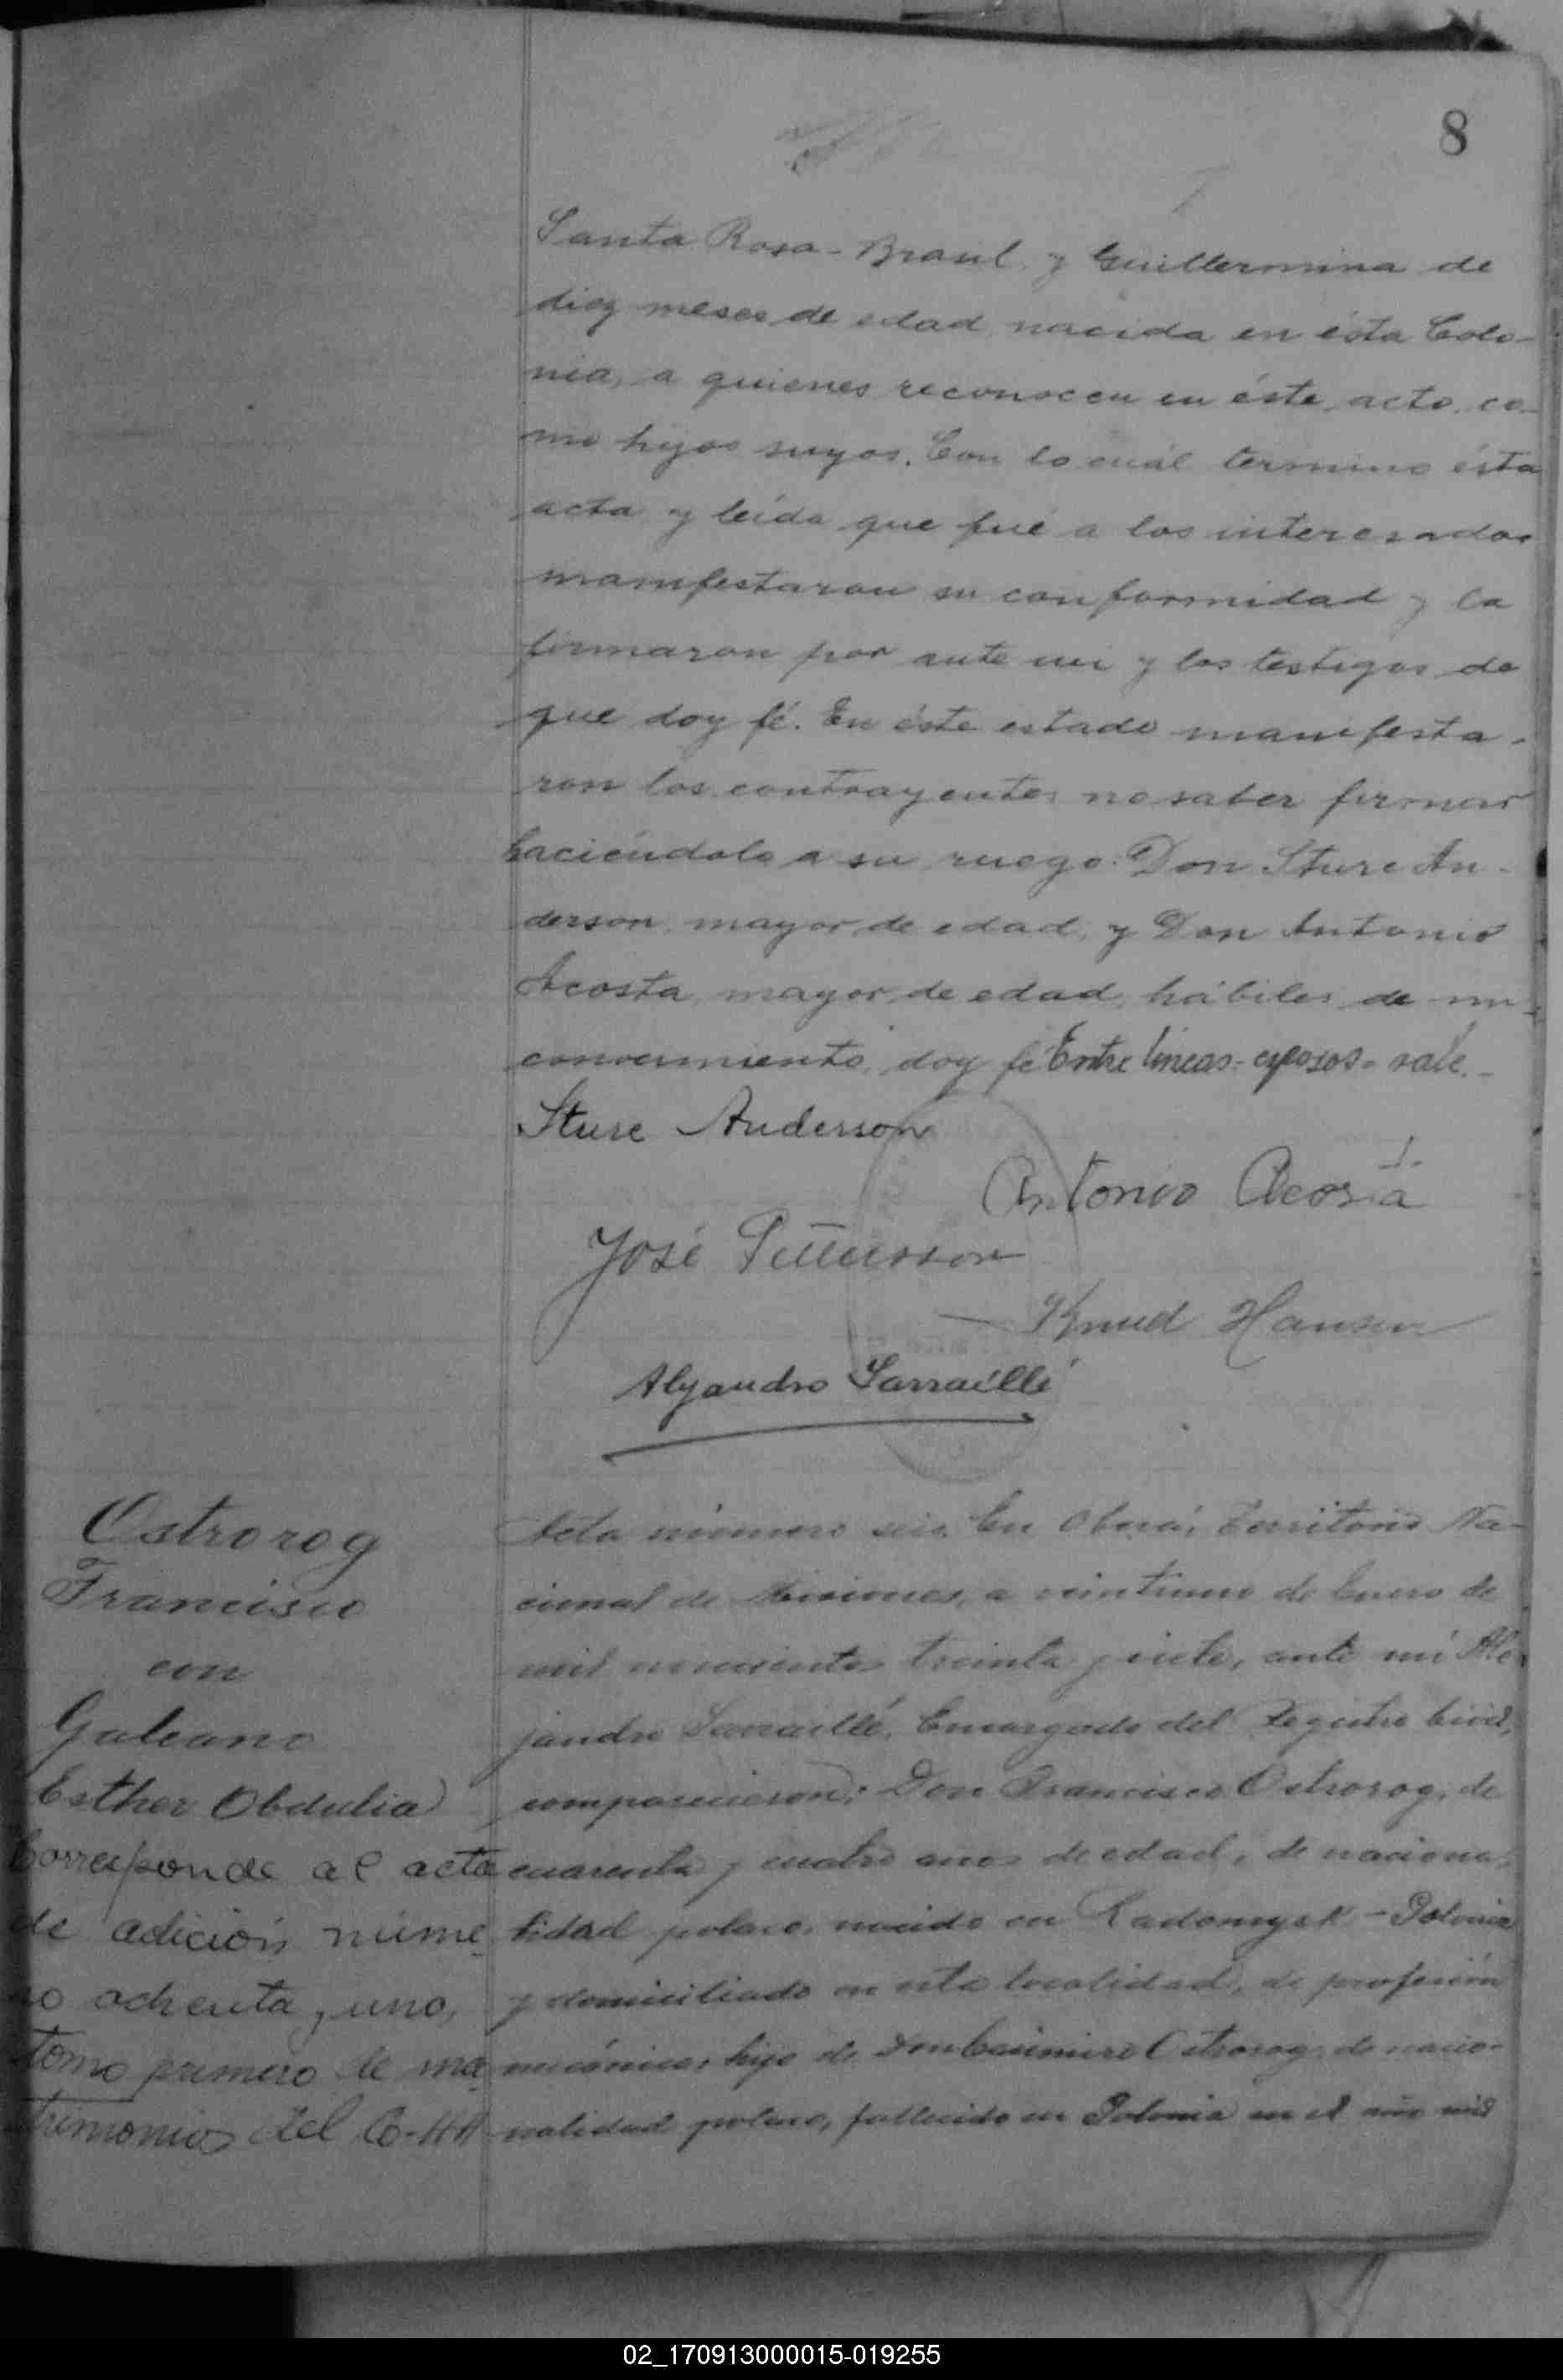 8
Santa Rosa - Brasil y Guillermina de
diez meses de edad nacida en ésta Colo-
nia, a quienes reconocen en éste acto co-
mo hijos suyos. Con lo cuál termino ésta
acta y leída que fué a los interesados
manifestaron su conformidad y la
firmaron por ante mi y los testigos de
que doy fé. En éste estado manifesta-
ron los contrayentes no saber firmar
haciéndolo a su ruego: Don Sture An-
derson, mayor de edad, y Don Antonio
Acosta, mayor de edad, hábiles de mi
conocimiento, doy fé Entre líneas = esposos = vale. -
Sture Anderson
Antonio Acosta
José Pettersson
Knud Hansen
Alejandro Sarraillé
Ostrorog
Francisco
con
Galeano
Esther Obdulia
Corresponde al acta
de adición núme-
ro ochenta y uno,
tomo primero de ma-
trimonios del
Acta número seis. En Oberá, Territorio Na-
cional de Misiones, a veintiuno de Enero de
mil novecientos treinta y siete, ante mí Ale-
jandro Sarraillé, Encargado del Registro Civil,
comparecieron: Don Francisco Ostrorog, de
cuarenta y cuatro anos de edad, de naciona-
lidad polaco, nacido en Radomysk - Polonia
y domiciliado en esta localidad, de profesión
mecánico, hijo de Don Casimiro Ostrorog, de nacio-
nalidad polaco, fallecido en Polonia en el año mil
02_170913000015-019255